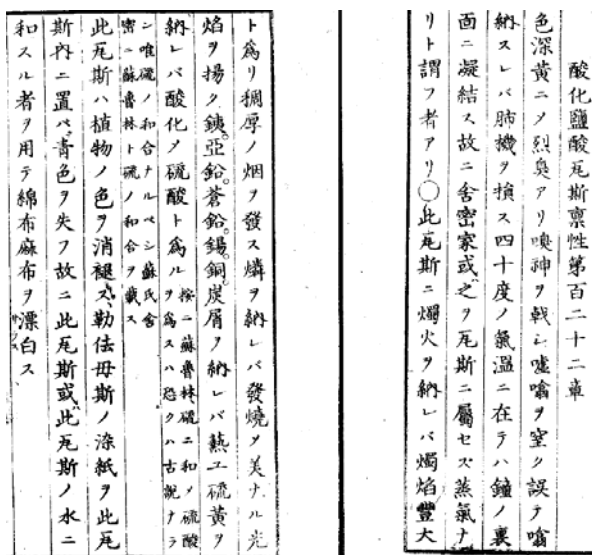 酸化鹽酸瓦斯稟性第百二十二章
色深黄ニ〆烈臭アリ嗅神ヲ戟シ嘘噏ヲ窒ク誤テ噏
納スレバ肺機ヲ損ス四十度ノ氣温ニ在テハ鐘ノ裏
面ニ凝結ス故ニ舎密家或之ヲ瓦斯ニ屬セズ蒸氣ナ
リト謂フ者アリ○此瓦斯ニ燭火ヲ納レバ燭焰豊大
ト爲リ稠厚ノ烟ヲ發ス燐ヲ納レバ發燒〆美ナル光
焰ヲ揚ク銕。亞鉛。蒼鉛。錫。銅。炭屑ヲ納レバ熱ユ硫黄ヲ
納レバ酸化〆硫酸ト爲ル
按ニ蘇魯林硫ニ和〆硫酸
ヲ爲スハ恐クハ古説ナラ
ン唯硫ノ和合ナルベシ蘇氏舎
密ニ蘇魯林ト硫ノ和合ヲ載ス
此瓦斯ハ植物ノ色ヲ消褪ス勒佉母斯ノ染紙ヲ此瓦
斯内ニ置バ青色ヲ失フ故ニ此瓦斯或此瓦斯ノ水ニ
和スル者ヲ用テ綿布麻布ヲ漂白ス